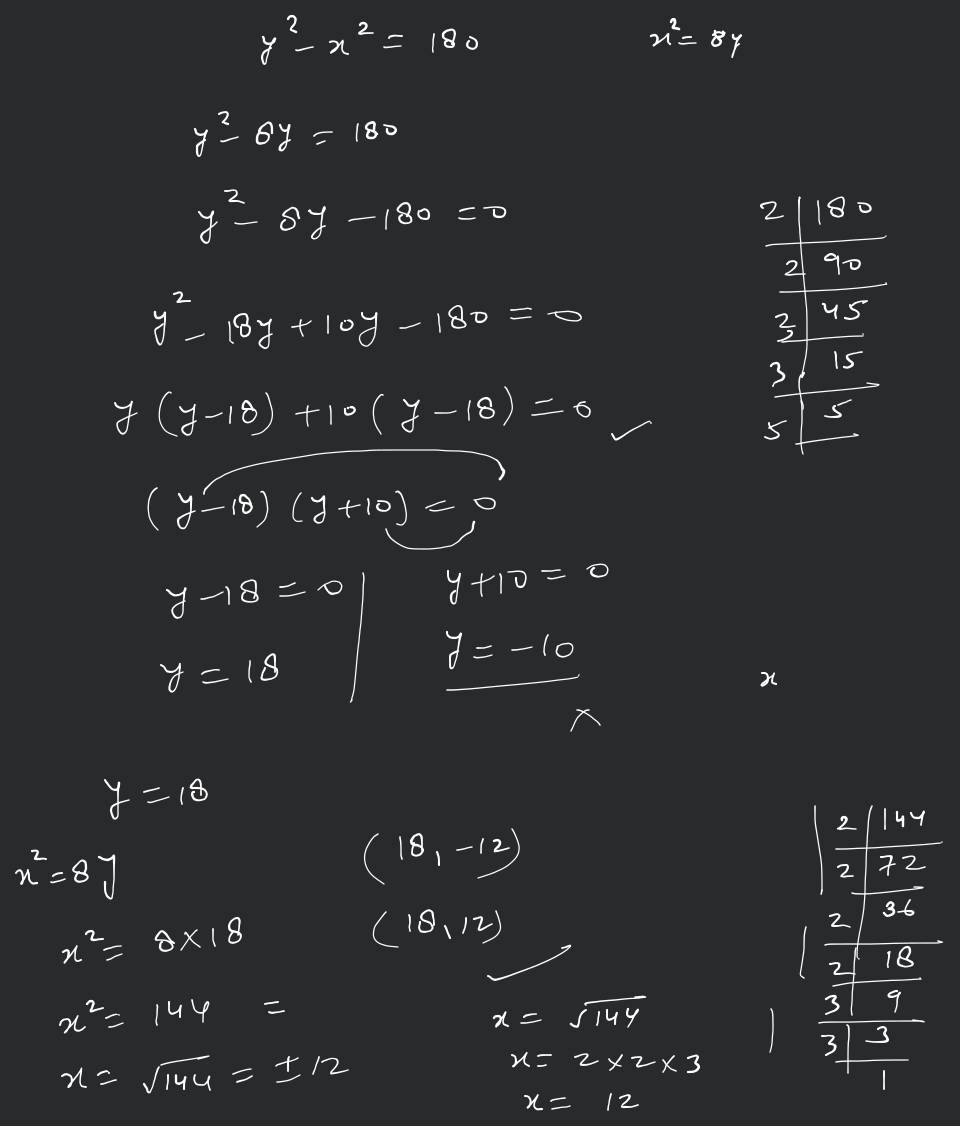 y² - x² = 180    x² = 8y
y² - 8y = 180
y² - 8y - 180 = 0
y² - 18y + 10y - 180 = 0
y (y-18) + 10 (y-18) = 0 ✓
(y-18) (y+10) = 0
y-18 = 0 | y+10 = 0
y = 18 | y = -10
x
×
2 | 180
2 | 90
3 | 45
3 | 15
5 | 5
y = 18
x² = 8y    (18, -12)
x² = 8×18    (18, 12) ✓
x² = 144 =
x = √144 = ±12
x = √144
x = 2×2×3
x = 12
2 | 144
2 | 72
2 | 36
2 | 18
3 | 9
3 | 3
1